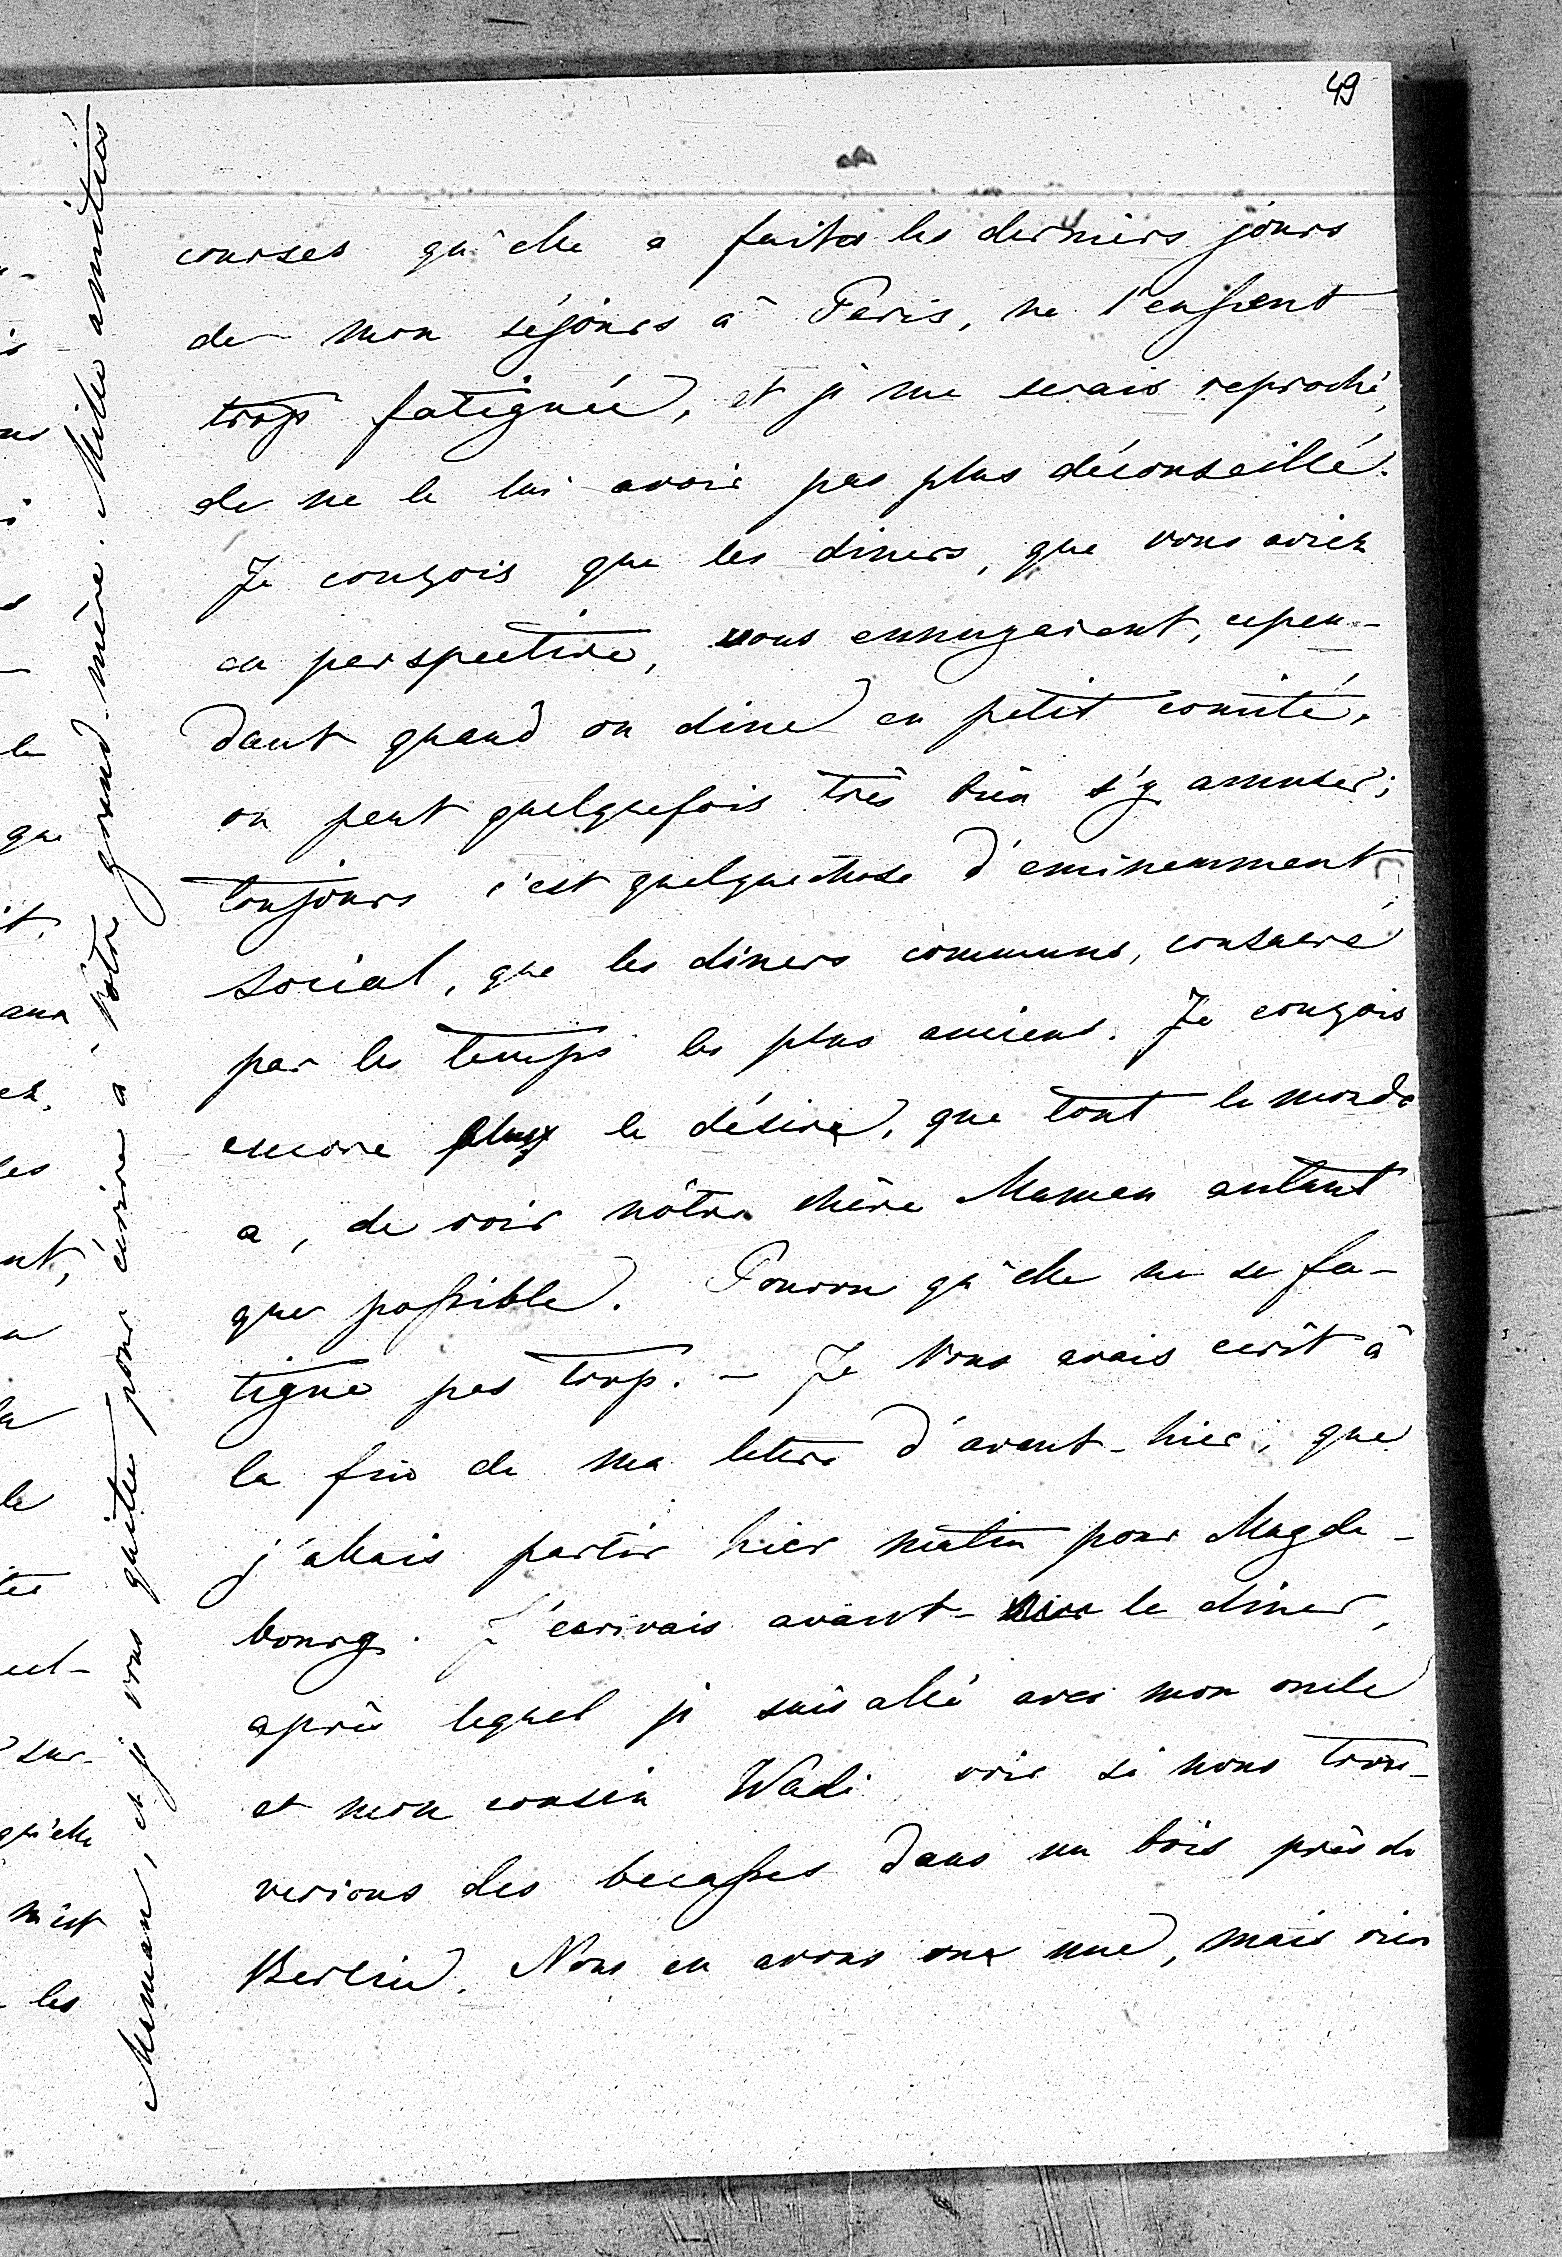 49
courses qu'elle a faites les derniers jours
de mon séjours à Paris, ne l'eussent
trop fatiguée, et je me serais reproché,
de ne le lui avoir pas plus déconseillé.
Je conçois que les diners, que vous aviez
en perspective, vous ennuyaient, cepen-
dant quand on dine en petit comité,
on peut quelquefois très bien s'y amuser;
toujours c'est quelquechose d'eminemment
social, que les diners communs, consacré
par les temps les plus anciens. Je conçois
encore plus le désire, que tout le monde
a, de voir nôtre chère Maman autant
que possible. Pourvu qu'elle ne se fa-
tigue pas trop. – Je vous avais ecrit à
la fin de ma lettre d'avant-hier, que
j'allais partir hier matin pour Magde-
bourg. J'écrivais avant le diner,
après lequel je suis allé avec mon oncle
et mon cousin Wadi voir si nous trou-
verions des becasses dans un bois près de
Berlin. Nous en avons une, mais rien
Maman, et je vous quitte pour écrire à Vôtre grand-mère. Mille amitiés
que
it,
les
la
le
sur-
qu'elle
m'est
les